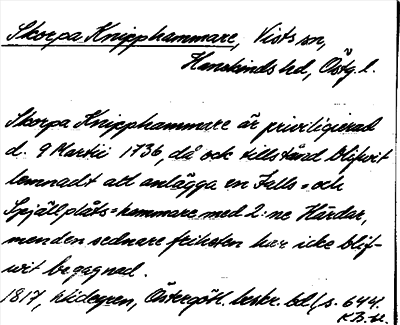 Skorpa Knipphammare, Vists sn,
Hanekinds hd, Östg. l.
Skorpa Knipphammare är priviligierad
d. 9 Martii 1736, då ock tillstånd blifwit
lemnadt att anlägga en Falls- och
Spjällplåts-hammare med 2:ne Härdar,
men den sednere friheten har icke blif-
wit begagnad.
1817, Widegren, Östergötl. beskr. bd I, s. 644.